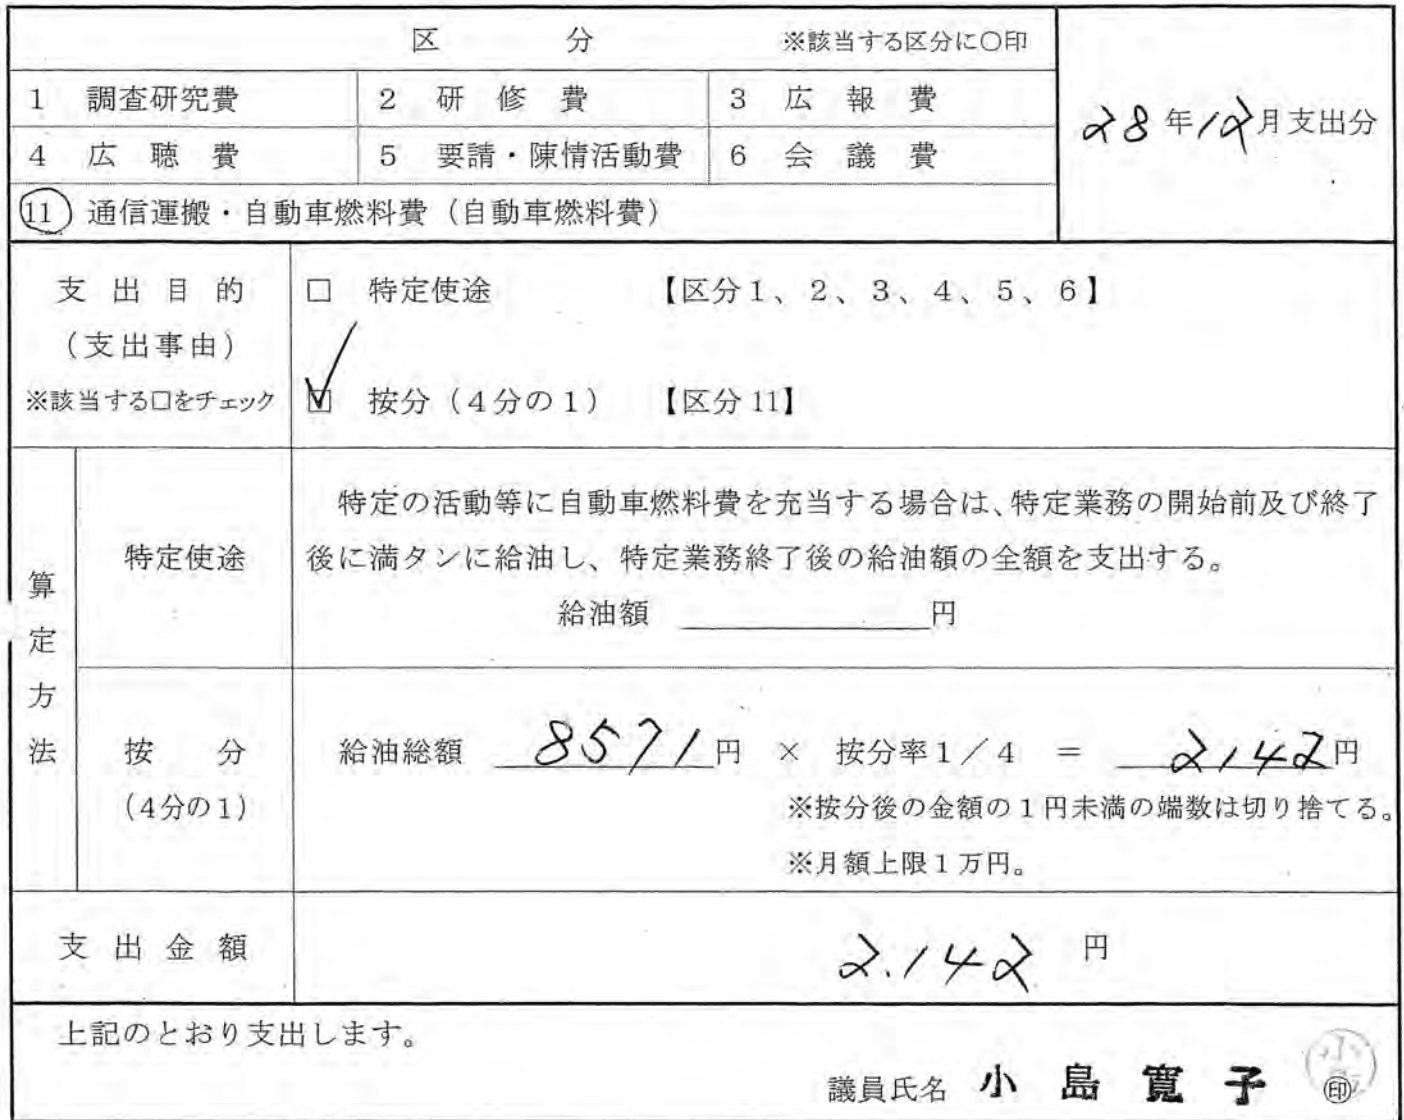 区　分　※該当する区分に〇印
1　調査研究費　2　研修費　3　広報費
28年12月支出分
4　広聴費　5　要請・陳情活動費　6　会議費
11　通信運搬・自動車燃料費（自動車燃料費）
支出目的　□　特定使途　【区分1、2、3、4、5、6】
（支出事由）
※該当する□をチェック　☑　按分（4分の1）　【区分11】
算定方法
特定使途
特定の活動等に自動車燃料費を充当する場合は、特定業務の開始前及び終了
後に満タンに給油し、特定業務終了後の給油額の全額を支出する。
給油額　＿＿＿＿円
按分
（4分の1）
給油総額　8571円　×　按分率1／4　＝　2142円
※按分後の金額の1円未満の端数は切り捨てる。
※月額上限1万円。
支出金額　2.142　円
上記のとおり支出します。
議員氏名　小島寛子　㊞